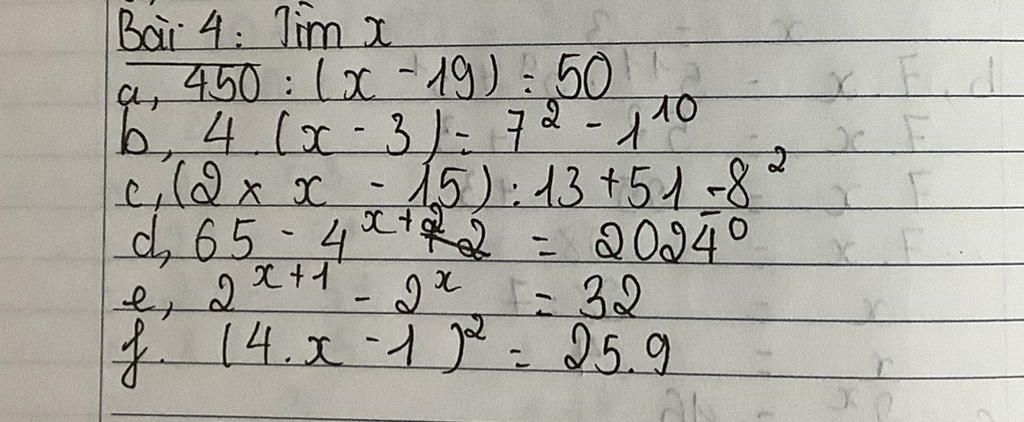 Bài 4: Tìm x
a, 450 : (x - 19) = 50
b, 4. (x - 3) = 7² - 1¹⁰
c, (2 × x - 15) : 13 + 51 = 8²
d, 65 - 4ˣ⁺² = 2024⁰
e, 2ˣ⁺¹ - 2ˣ = 32
f. (4.x - 1)² = 25.9